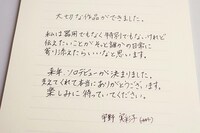 大切な作品ができました。
私は器用でもなく特別でもないけれど
伝えたいことが そっと誰かの日常に
寄り添えたら いいなと思います。
来年、ソロデビューが決まりました。
支えてくれて本当にありがとうございます。
楽しみに待っていてください。
宇野 実彩子